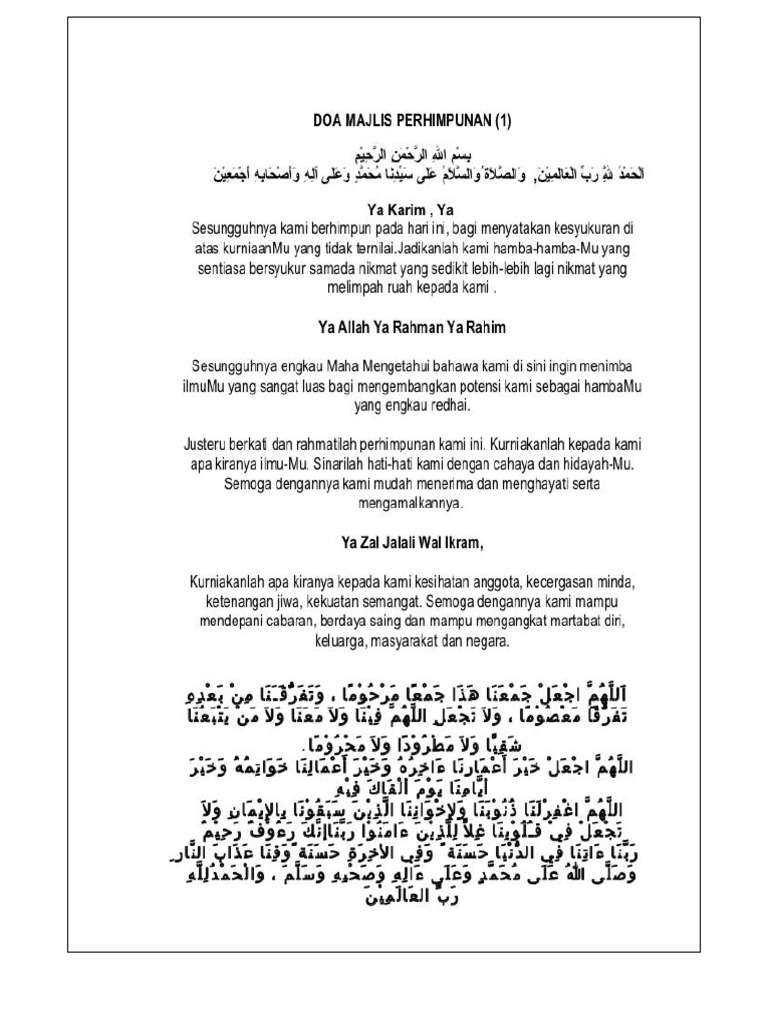 DOA MAJLIS PERHIMPUNAN (1)
بِسْمِ اللهِ الرَّحْمَنِ الرَّحِيْمِ
الْحَمْدُ لِلَّهِ رَبِّ الْعَالَمِيْنَ, وَالصَّلَاةُ وَالسَّلَامُ عَلَى سَيِّدِنَا مُحَمَّدٍ وَعَلَى آلِهِ وَأَصْحَابِهِ أَجْمَعِيْنَ
Ya Karim , Ya
Sesungguhnya kami berhimpun pada hari ini, bagi menyatakan kesyukuran di
atas kurniaanMu yang tidak ternilai.Jadikanlah kami hamba-hamba-Mu yang
sentiasa bersyukur samada nikmat yang sedikit lebih-lebih lagi nikmat yang
melimpah ruah kepada kami .
Ya Allah Ya Rahman Ya Rahim
Sesungguhnya engkau Maha Mengetahui bahawa kami di sini ingin menimba
ilmuMu yang sangat luas bagi mengembangkan potensi kami sebagai hambaMu
yang engkau redhai.
Justeru berkati dan rahmatilah perhimpunan kami ini. Kurniakanlah kepada kami
apa kiranya ilmu-Mu. Sinarilah hati-hati kami dengan cahaya dan hidayah-Mu.
Semoga dengannya kami mudah menerima dan menghayati serta
mengamalkannya.
Ya Zal Jalali Wal Ikram,
Kurniakanlah apa kiranya kepada kami kesihatan anggota, kecergasan minda,
ketenangan jiwa, kekuatan semangat. Semoga dengannya kami mampu
mendepani cabaran, berdaya saing dan mampu mengangkat martabat diri,
keluarga, masyarakat dan negara.
اَللَّهُمَّ اجْعَلْ جَمْعَنَا هَذَا جَمْعًا مَرْحُوْمًا ، وَتَفَرُّقَنَا مِنْ بَعْدِهِ
تَفَرُّقًا مَعْصُوْمًا ، وَلاَ تَجْعَلِ اللَّهُمَّ فِيْنَا وَلاَ مَعَنَا وَلاَ مَنْ يَتْبَعُنَا
شَقِيًّا وَلاَ مَطْرُوْدًا وَلاَ مَحْرُوْمًا.
اللَّهُمَّ اجْعَلْ خَيْرَ أَعْمَارِنَا ءَاخِرَهُ وَخَيْرَ أَعْمَالِنَا خَوَاتِمَهُ وَخَيْرَ
أَيَّامِنَا يَوْمَ أَلْقَاكَ فِيْهِ
اللَّهُمَّ اغْفِرْلَنَا ذُنُوْبَنَا وَلإِخْوَانِنَا الَّذِيْنَ سَبَقُوْنَا بِالإِيْمَانِ وَلاَ
تَجْعَلْ فِي قُلُوْبِنَا غِلاًّ لِلَّذِيْنَ ءَامَنُوْا رَبَّنَاإِنَّكَ رَءُوْفٌ رَحِيْمٌ
رَبَّنَا ءَاتِنَا فِي الدُّنْيَا حَسَنَةً وَفِي الأَخِرَةِ حَسَنَةً وَقِنَا عَذَابَ النَّارِ.
وَصَلَّى اللهُ عَلَى مُحَمَّدٍ وَعَلَى ءَالِهِ وَصَحْبِهِ وَسَلَّمَ ، وَالْحَمْدُلِلَّهِ
رَبِّ العَالَمِيْنَ